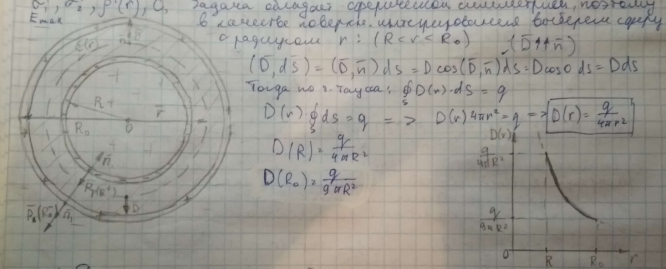 σ₁, σ₂, ρ'(r), 0,
Eмах
Задача обладает сферической симметрией, поэтому
в качестве поверхн. интегрирования выберем сферу
с радиусом r: (R < r < R₀) (D̄↑↑n̄)
(D̄, ds̄) = (D̄, n̄) ds = D cos(D̄, n̄) ds = D cos 0 ds = D ds
Тогда по т. Гаусса: ∮ D(r)·ds = q
S
D(r) ∮ ds = q => D(r) 4πr² = q => D(r) = q/4πr²
S
D(R) = q/4πR²
D(R₀) = q/9πR²
ε(r)
R
R₀
0
r̄
n̄
D̄
D(r)
q/4πR²
q/9πR²
0 R R₀ r